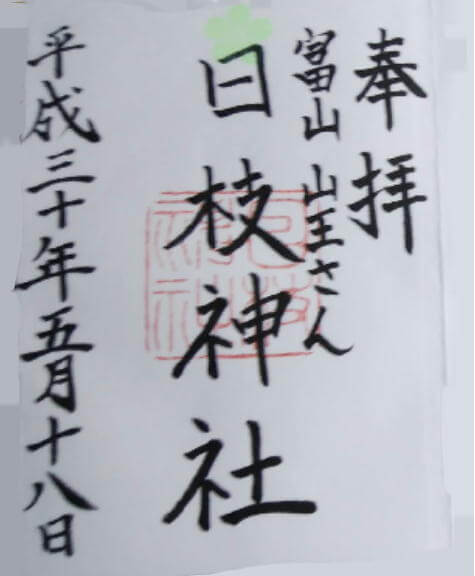 奉拝
富山 山王さん
日枝神社
平成三十年五月十八日